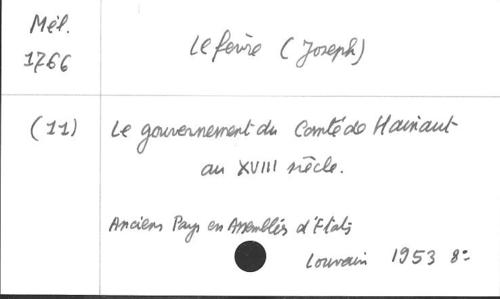 Mél.
1766
Lefèvre (Joseph)
(11)
Le gouvernement du Comté de Hainaut
au XVIII siècle.
Anciens Pays en Assemblées d'Etats
Louvain 1953 8°